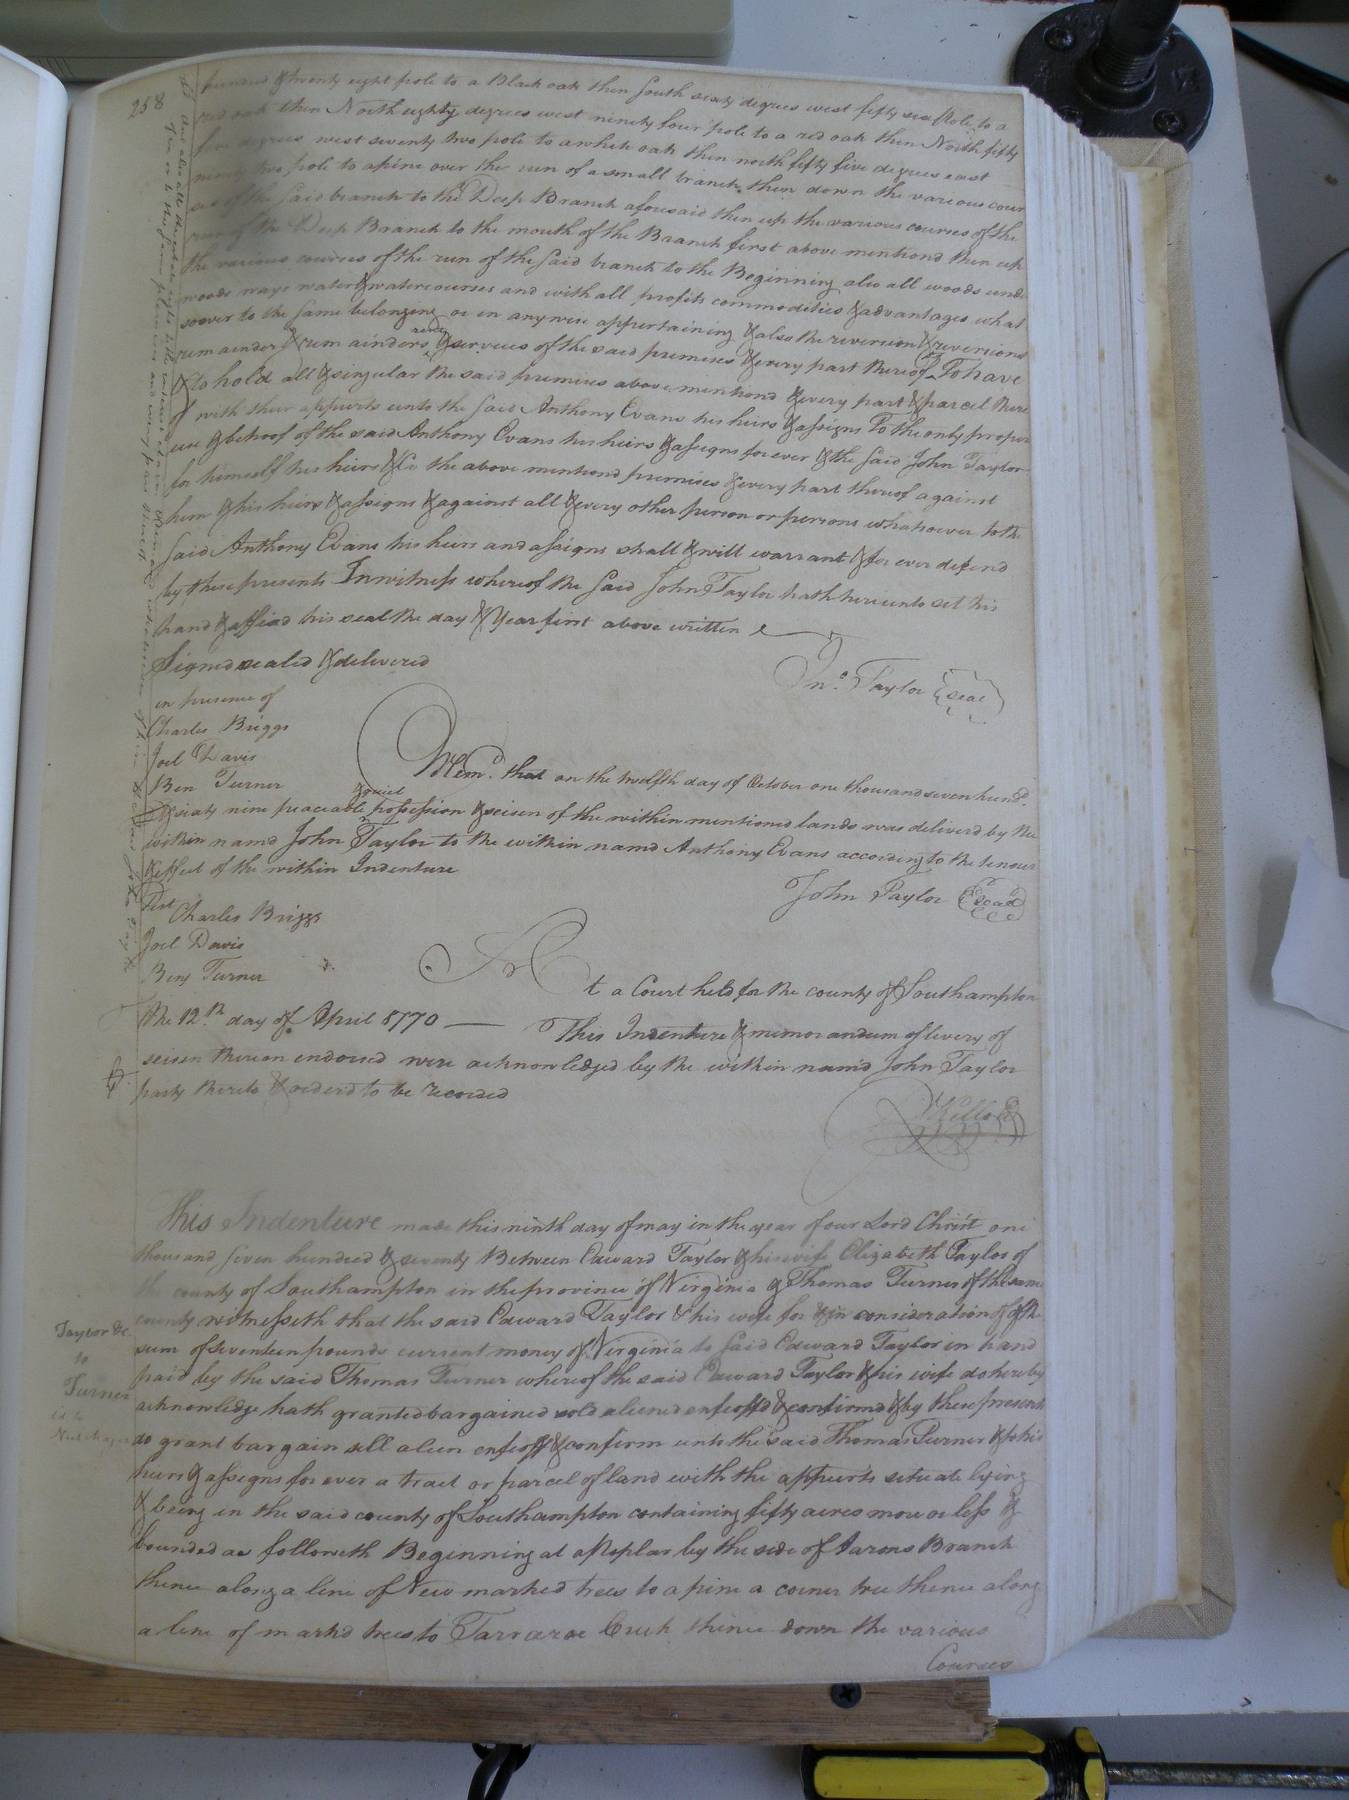 258
hundred & twenty eight pole to a Black oak then South sixty degrees west fifty six pole to a
red oak then North eighty degrees west ninety four pole to a red oak then North fifty
five degrees west seventy two pole to a white oak then north fifty five degrees east
ninety two pole to a pine over the run of a small branch then down the various cour
ses of the said branch to the Deep Branch aforesaid then up the various courses of the
run of the Deep Branch to the mouth of the Branch first above mentiond then up
the various courses of the run of the said branch to the Beginning also all woods unde
woods ways waters & watercourses and with all profits commodities & advantages what
soever to the same belonging or in anywise appertaining & also the reversion & reversions
remainder & remainders & services of the said premises & every part thereof To have
& to hold all & singular the said premises above mentiond & every part & parcel there
of with their appurts unto the said Anthony Evans his heirs & assigns To the only proper
use & behoof of the said Anthony Evans his heirs & assigns forever & the said John Taylor
for himself his heirs &c the above mentiond premises & every part thereof against
him & his heirs & assigns & against all & every other person or persons whatsoever to the
said Anthony Evans his heirs and assigns shall & will warrant & for ever defend
by these presents In witness whereof the said John Taylor hath hereunto set his
hand & affixd his seal the day & Year first above written
Signed sealed & delivered
Jno. Taylor seal
in presence of
Charles Briggs
Joel Davis
Ben Turner
Memd. that on the twelfth day of October one thousand seven hund.
quiet
& sixty nine peaceable possession & seisen of the within mentioned lands was deliverd by the
within namd John Taylor to the within namd Anthony Evans according to the tenour
& effect of the within Indenture
John Taylor seal
Test
Charles Briggs
Joel Davis
Benj Turner
At a Court held for the county of Southampton
the 12th day of April 1770 — This Indenture & memorandum of livery of
seisen thereon endorsed were acknowledged by the within namd John Taylor
party thereto & orderd to be recorded
This Indenture made this ninth day of may in the year of our Lord Christ one
thousand seven hundred & seventy Between Edward Taylor & his wife Elizabeth Taylor of
the county of Southampton in the province of Virginia & Thomas Turner of the same
county witnesseth that the said Edward Taylor & his wife for & in consideration of the
sum of seventeen pounds current money of Virginia to said Edward Taylor in hand
paid by the said Thomas Turner whereof the said Edward Taylor & his wife do hereby
acknowledge hath granted bargained sold aliened enfeoffd & confirmd & by these presents
do grant bargain sell alien enfeoff & confirm unto the said Thomas Turner & to his
heirs & assigns for ever a tract or parcel of land with the appurts situate lying
& being in the said county of Southampton containing fifty acres more or less &
bounded as followeth Beginning at a Poplar by the side of Aarons Branch
thence along a line of New marked trees to a pine a corner tree thence along
a line of markd trees to Tarrarae Creek thence down the various
Courses
Taylor &c.
to
Turner